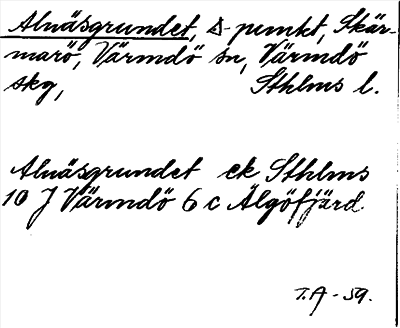 Alnäsgrundet, △-punkt, Skär-
marö, Värmdö sn, Värmdö
skg, Sthlms l.
Alnäsgrundet ek Sthlms
10 J Värmdö 6 c Älgöfjärd
T.A - 59.